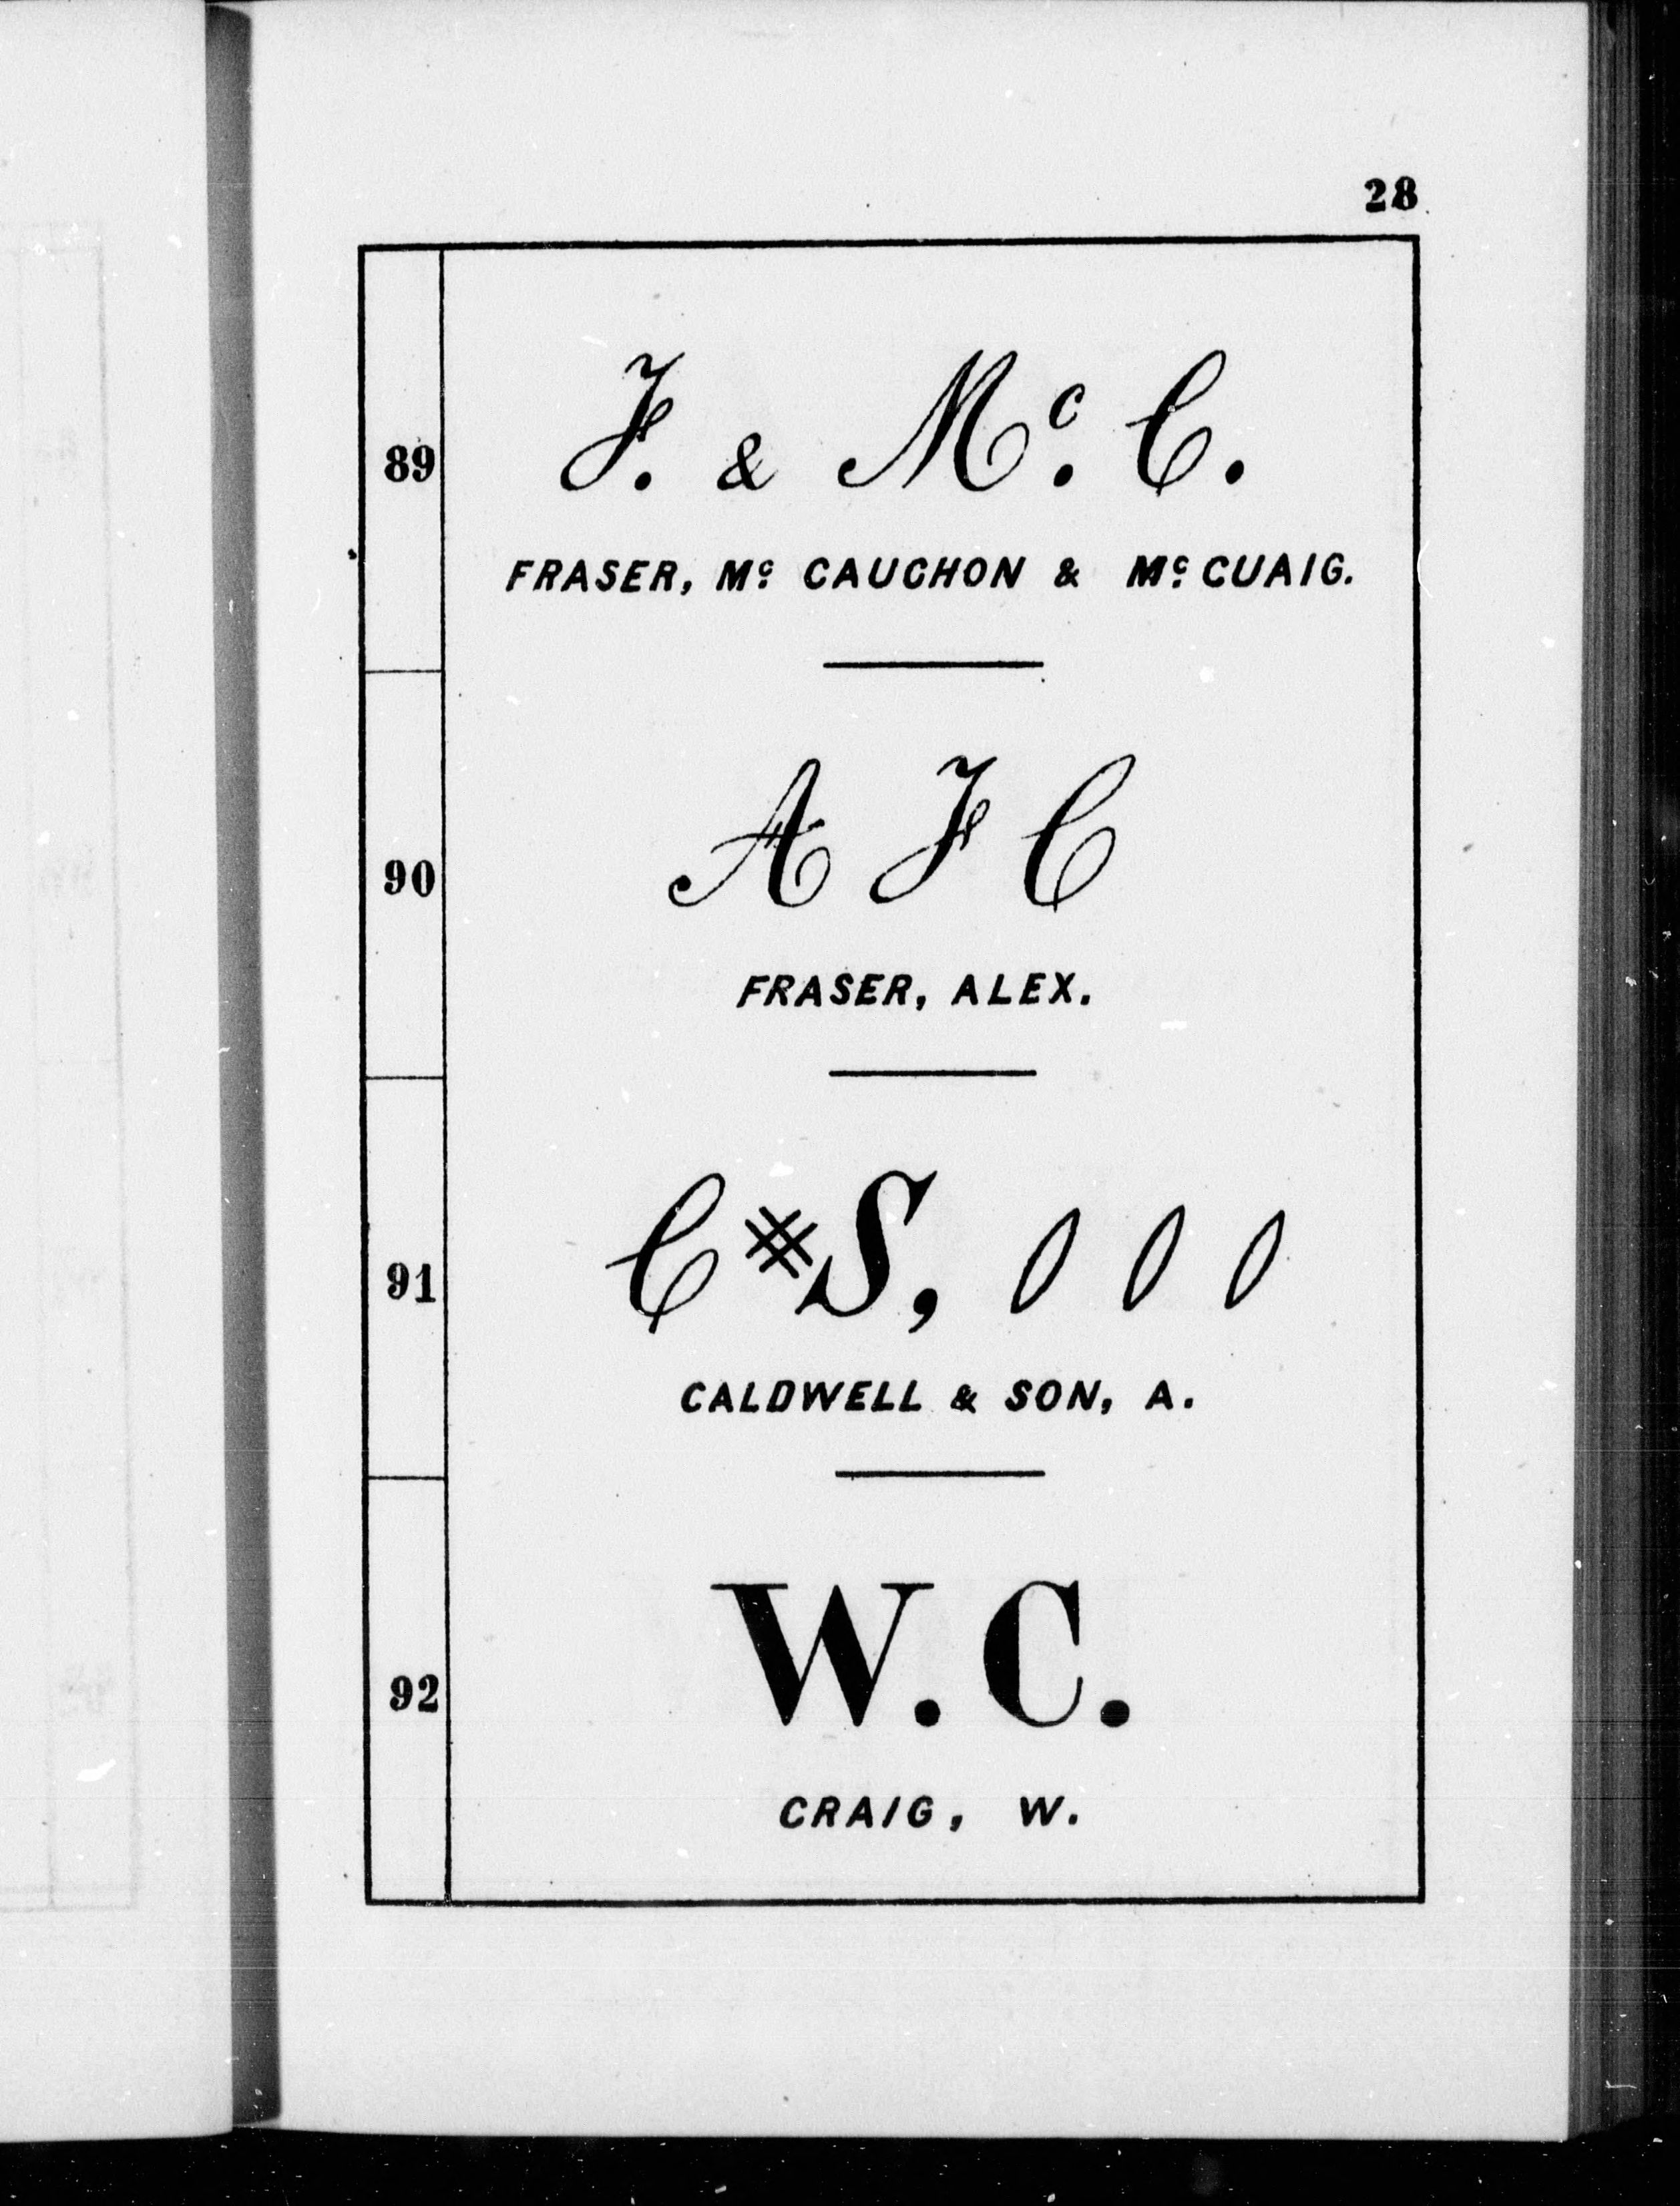 28
89
F. & Mc. C.
FRASER, Mc CAUCHON & Mc CUAIG.
90
A F C
FRASER, ALEX.
91
C # S, 0 0 0
CALDWELL & SON, A.
92
W. C.
CRAIG, W.